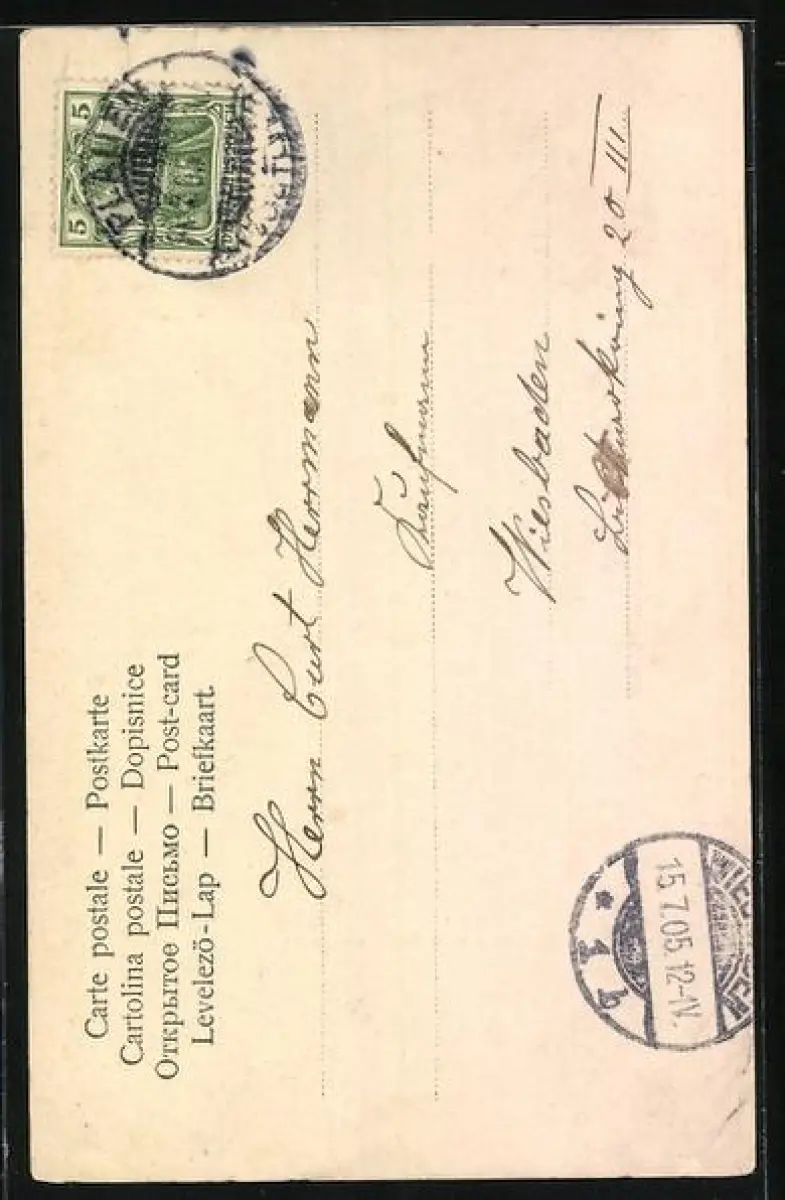 Carte postale — Postkarte
Cartolina postale — Dopisnice
Открытое Письмо — Post-card
Levelező-Lap — Briefkaart
5 5
PLAUEN
Herrn Curt Herrmann
Kaufmann
Wiesbaden
20 III
WIESBADEN
15.7.05.12-1V.
* 1 b